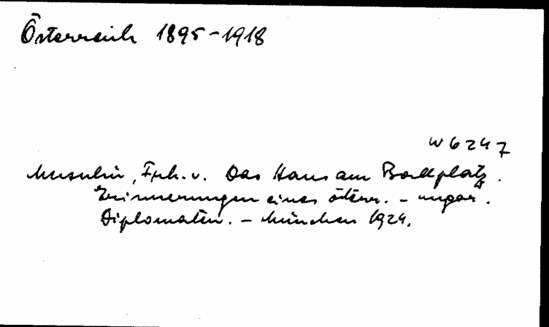 Österreich 1895-1918
W 6247
Musulin, Frh. v. Das Haus am Ballplatz.
Erinnerungen eines österr. - ungar.
Diplomaten. - München 1924.